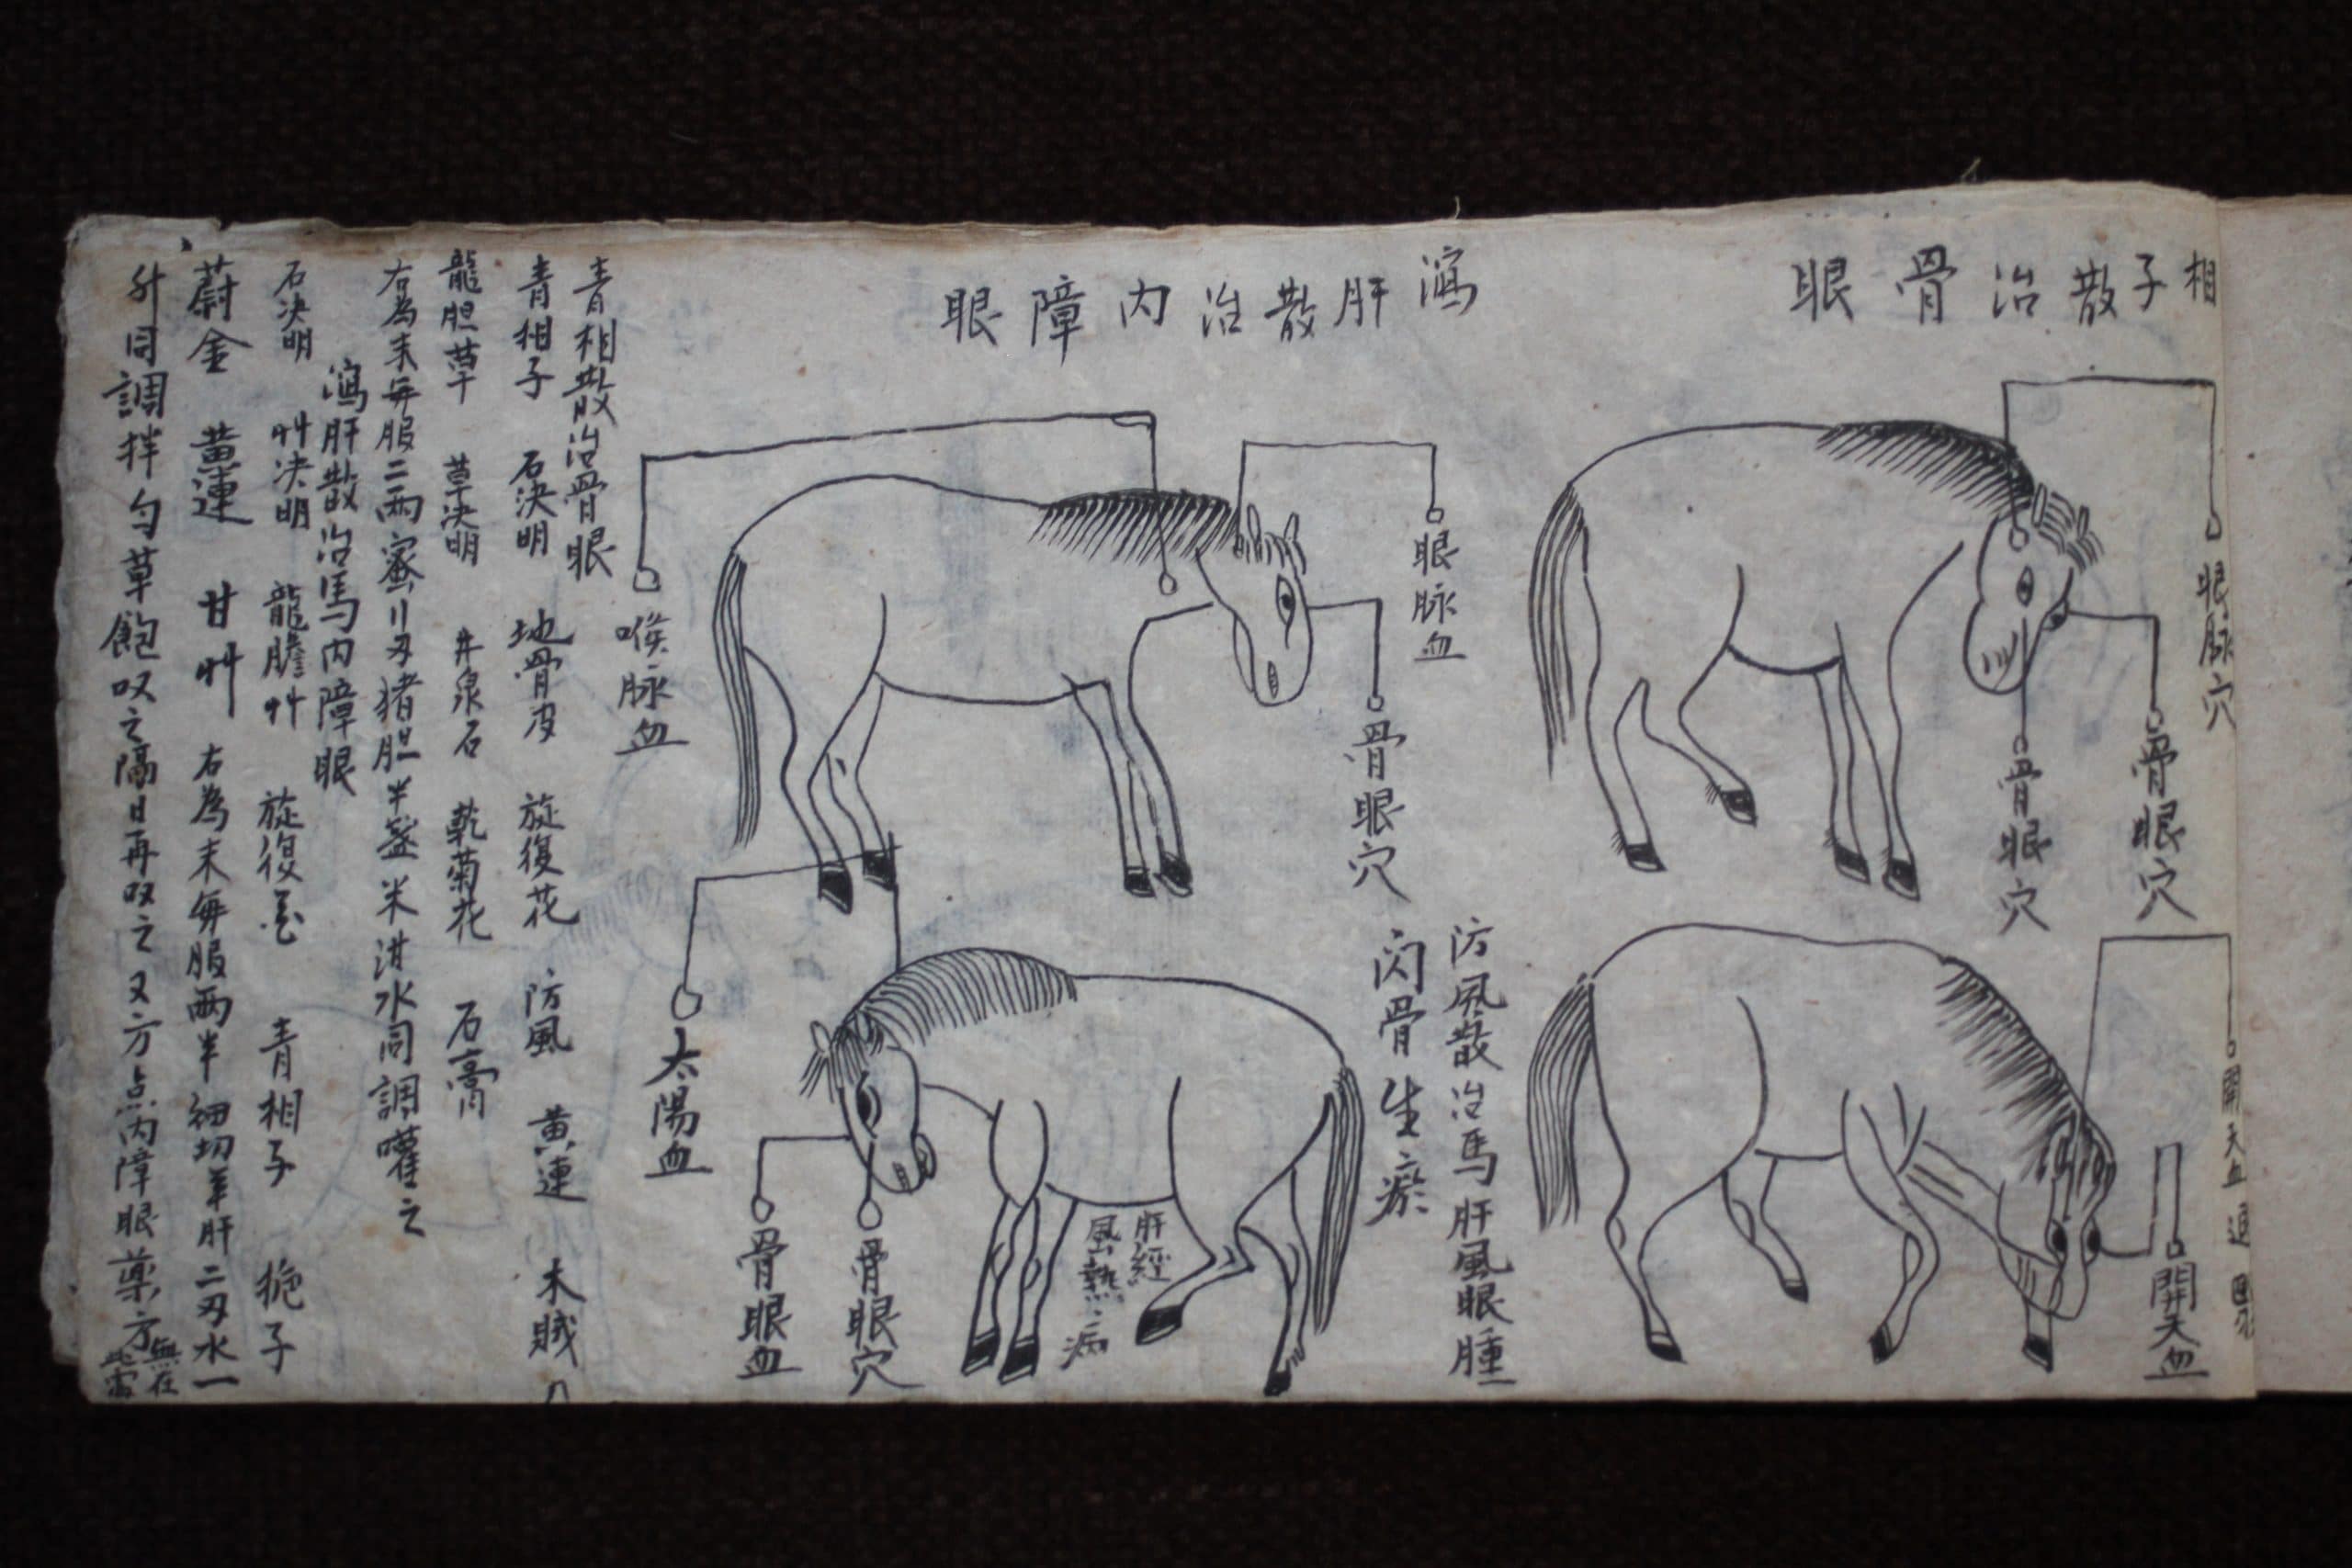 相子散治骨眼
眼脉穴
骨眼穴
骨眼穴
開天血
開天血
瀉肝散治内障眼
眼脉血
骨眼穴
喉脉血
防風散治馬肝風眼腫
閃骨生瘀
肝經
風熱病
太陽血
骨眼穴
骨眼血
青相散治骨眼
青相子 石決明 地骨皮 旋復花 防風 黄連 木賊
龍胆草 草决明 井泉石 乾菊花 石膏
右為末每服二兩蜜川刄猪胆半盞米泔水同調嚾之
瀉肝散治馬内障眼
石决明 艸决明 龍膽艸 旋復 青相子 梔子
蔚金 黄連 甘艸 右為末每服兩半細切羊肝二刄水一
升同調拌匀草飽㕛之隔日再㕛之又方点内障眼藥方
無在